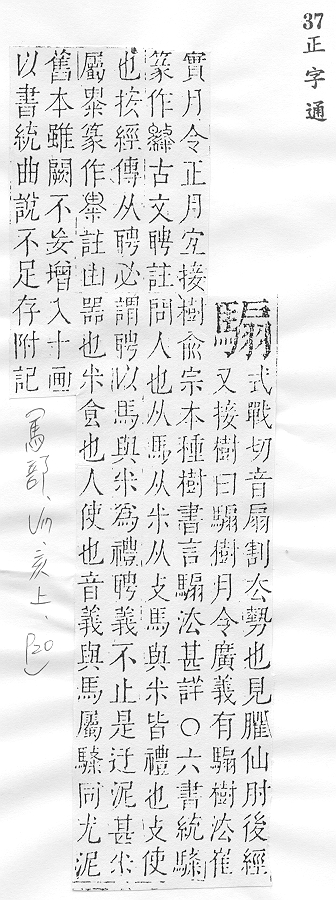 37
正字通
騸式戰切音扇割厺勢也見臞仙肘後經
又接樹曰騸樹月令廣義有騸樹法崔
寔月令正月宐接樹俞宗本種樹書言騸法甚詳○六書統
篆作古文聘註問人也从馬从米从攴馬與米皆禮也攴使
也按經傳从聘必謂聘以馬與米為禮聘義不止是迂泥甚米
屬篆作註由器也米食也人使也音義與馬屬同尤泥
舊本雖闕不妄增入十画
以書統曲說不足存附記
(馬部、亥上、P20)